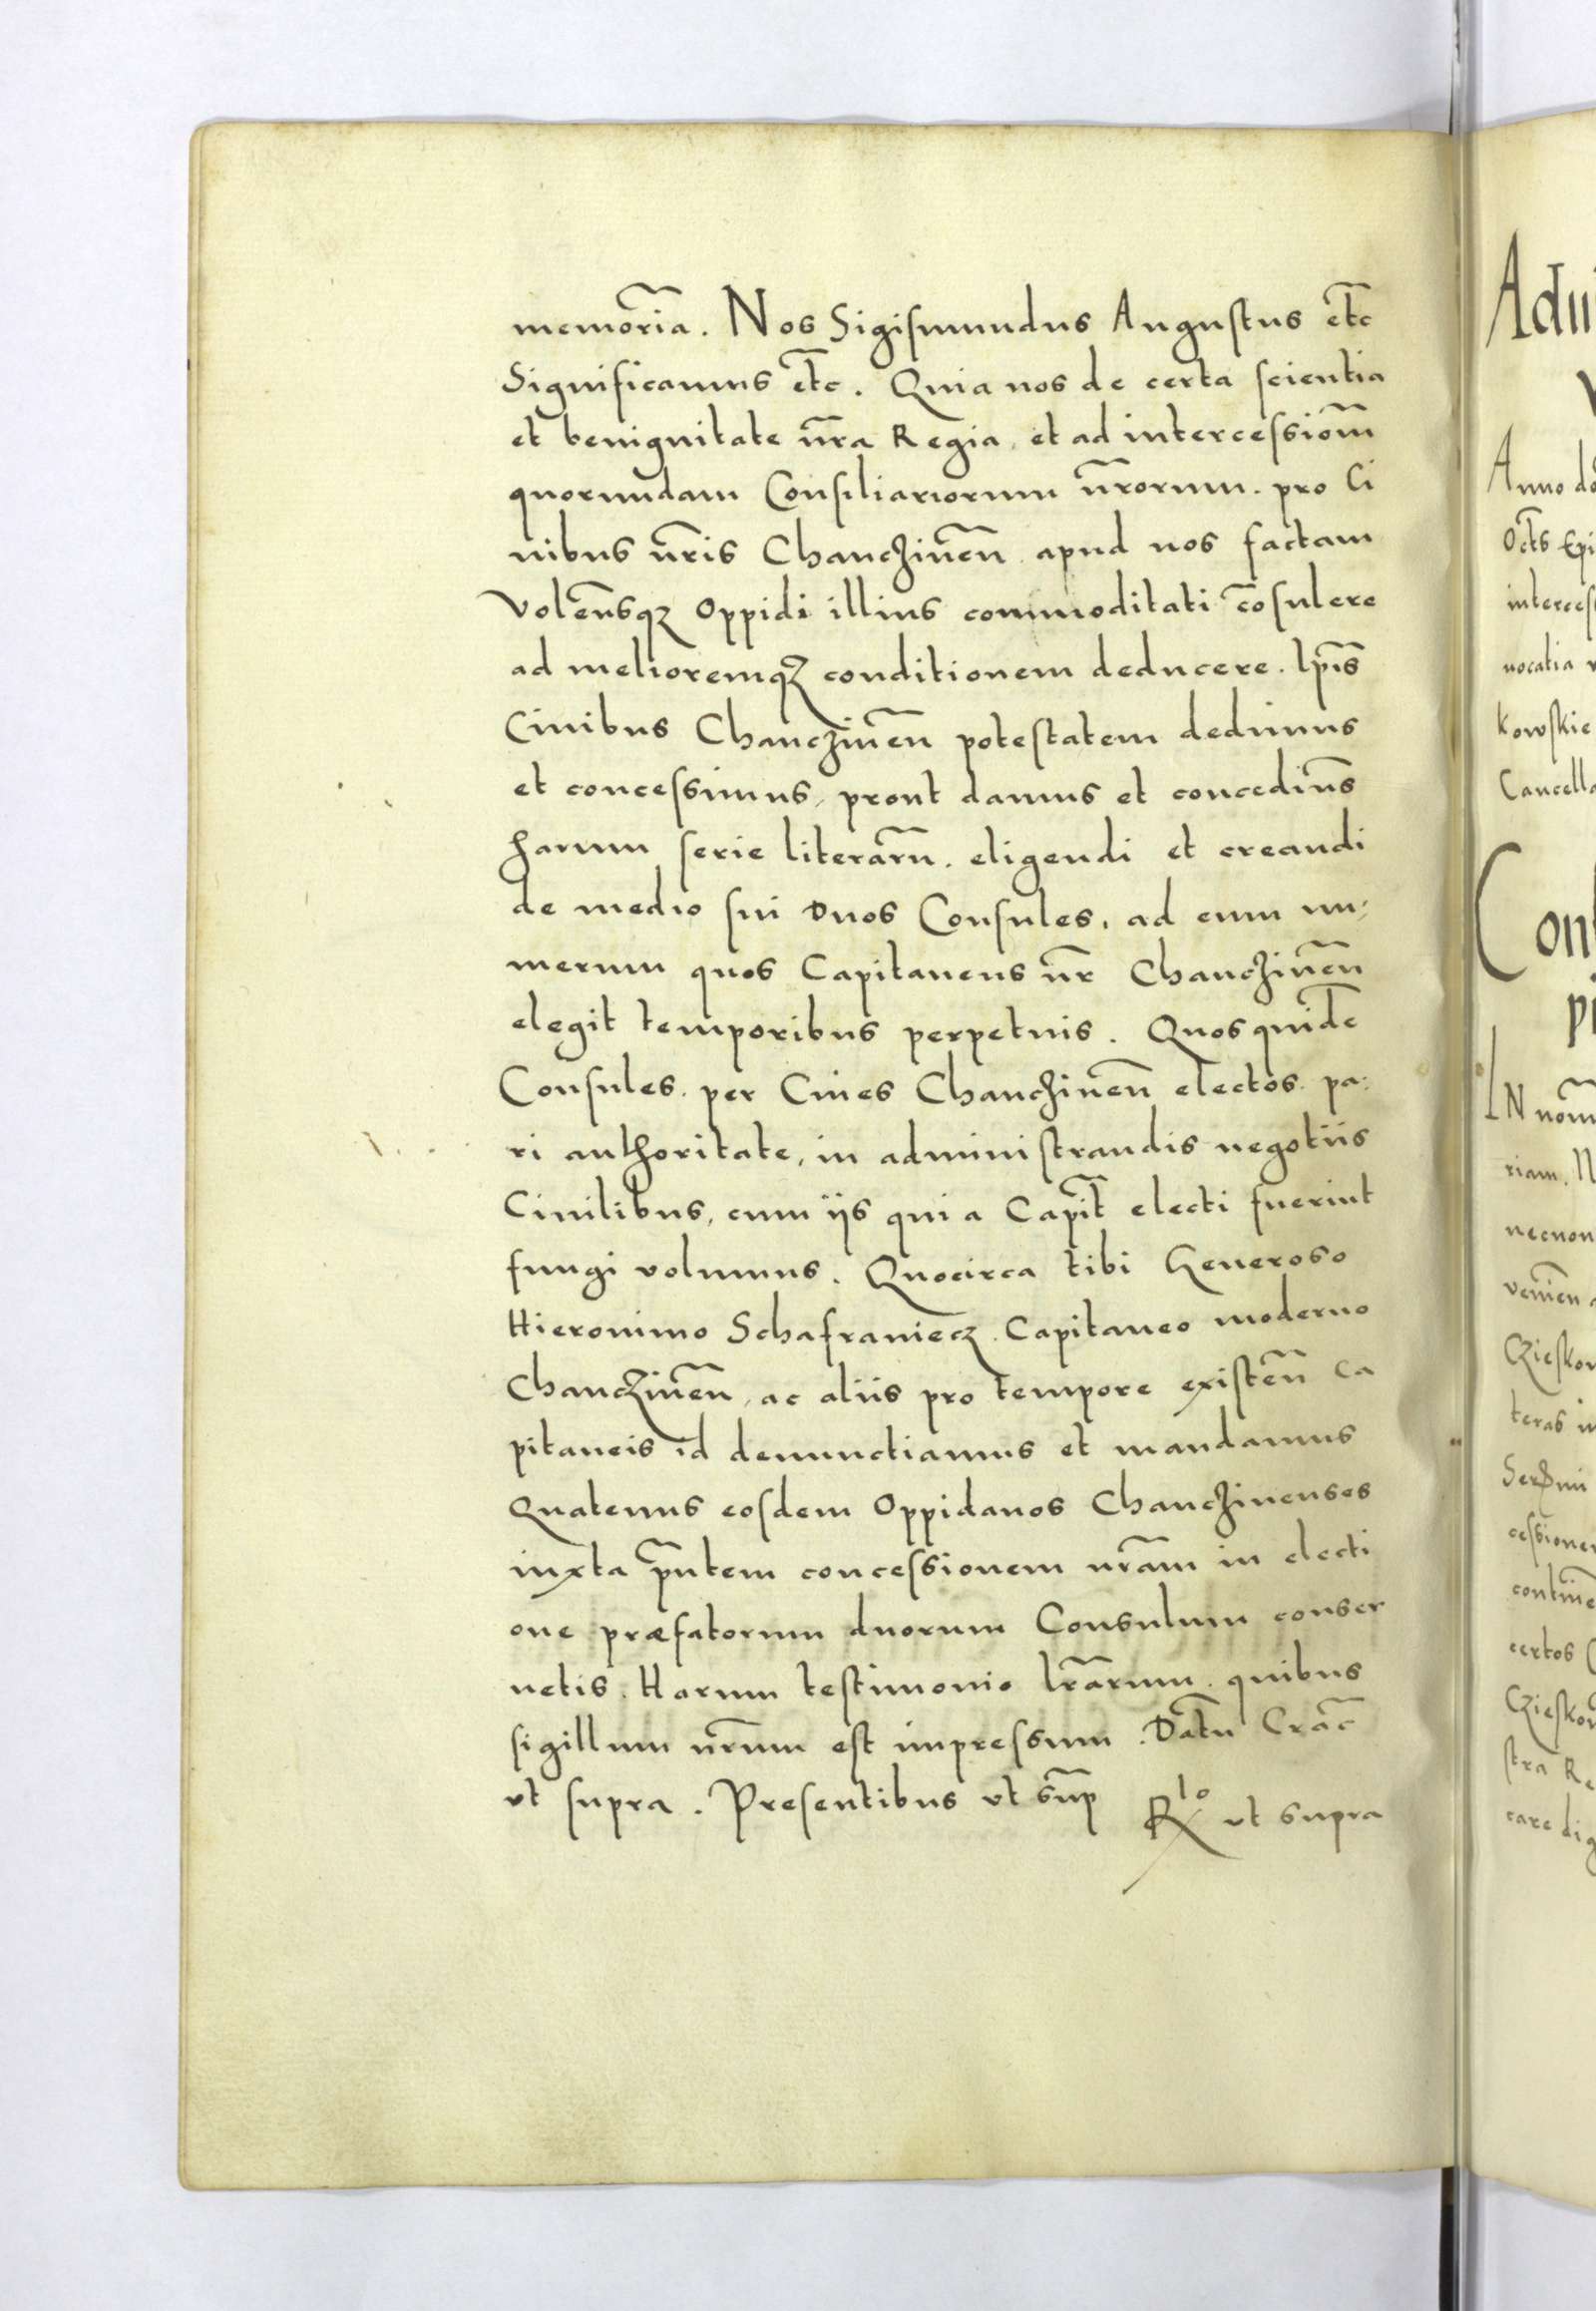 memor̃ia. Nos Sigismundus Augustus etc̃
Significamus etc̃. Quia nos de certa scientia
et benignitate nr̃a Regia, et ad intercessiom̃
quorundam Consiliariorum nr̃orum. pro Ci
uibus nr̃is Chancziñen̄. apud nos factam
Volen̄sqz Oppidi illius commoditati cōsulere
ad melioremqz conditionem deducere. Ip̄is
Ciuibus Chancziñen̄ potestatem dedimus
et concessimus, prout damus et concedim̄s
harum serie literar̃u. eligendi et creandi
de medio sui Duos Consules, ad eum nu;
merum quos Capitaneus nr̃ Chancziñen̄
elegit temporibus perpetuis. Quos quidē
Consules. per Ciues Chanczinen̄ electos. pa:
ri authoritate, in administrandis negotiis
Ciuilibus, cum ijs qui a Capit̃ electi fuerint
fungi volumus. Quocirca tibi Generoso
Hieronimo Schafraniecz. Capitaneo moderno
Chancziñen̄, ac aliis pro tempore existen̄ Ca
pitaneis id denunctiamus et mandamus
Quatenus eosdem Oppidanos Chanczinenses
iuxta pn̄tem concessionem nr̃am in electi
one præfatorum duorum Consulum conser
uetis. Harum testimonio lr̃arum. quibus
sigillum nr̃um est impressum. Dat̃u Crac̃
vt supra. Presentibus vt sup̃ Rlo vt supra
Adui
Anno do
Oct̃s Epi
interces
uocatia
kowskie
Cancella
Con
pi
IN nom̃
riam. N
necnon
venien̄
Czieskow
teras in
cessionem
contine
certos
Czieskow
stra Re
care dig